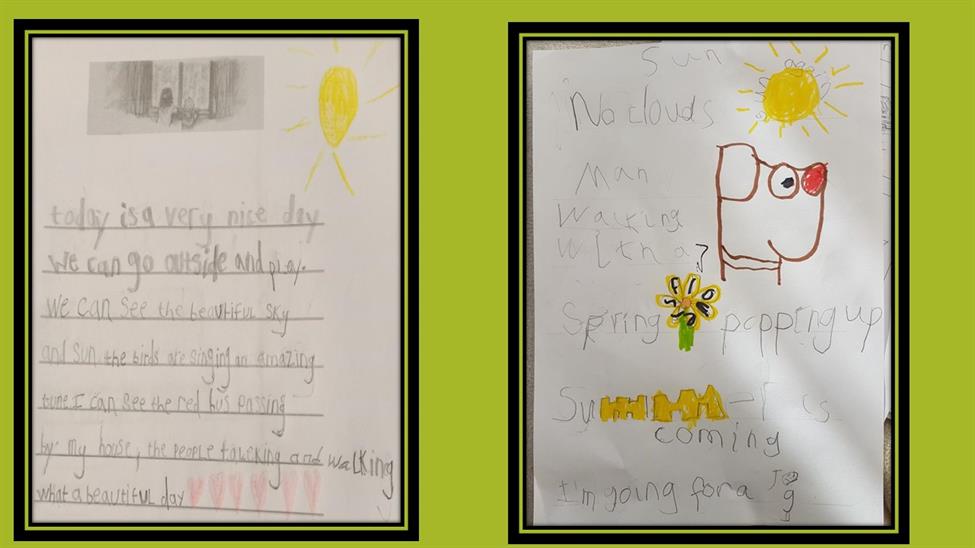 today is a very nice day
we can go outside and play.
we can see the beautiful sky
and sun. the birds are singing an amazing
tune I can see the red bus passing
by my house, the people taucking and walking
what a beautiful day
Sun
No clouds
Man
Walking
With a
Spring popping up
is
coming
I'm going for a Jog